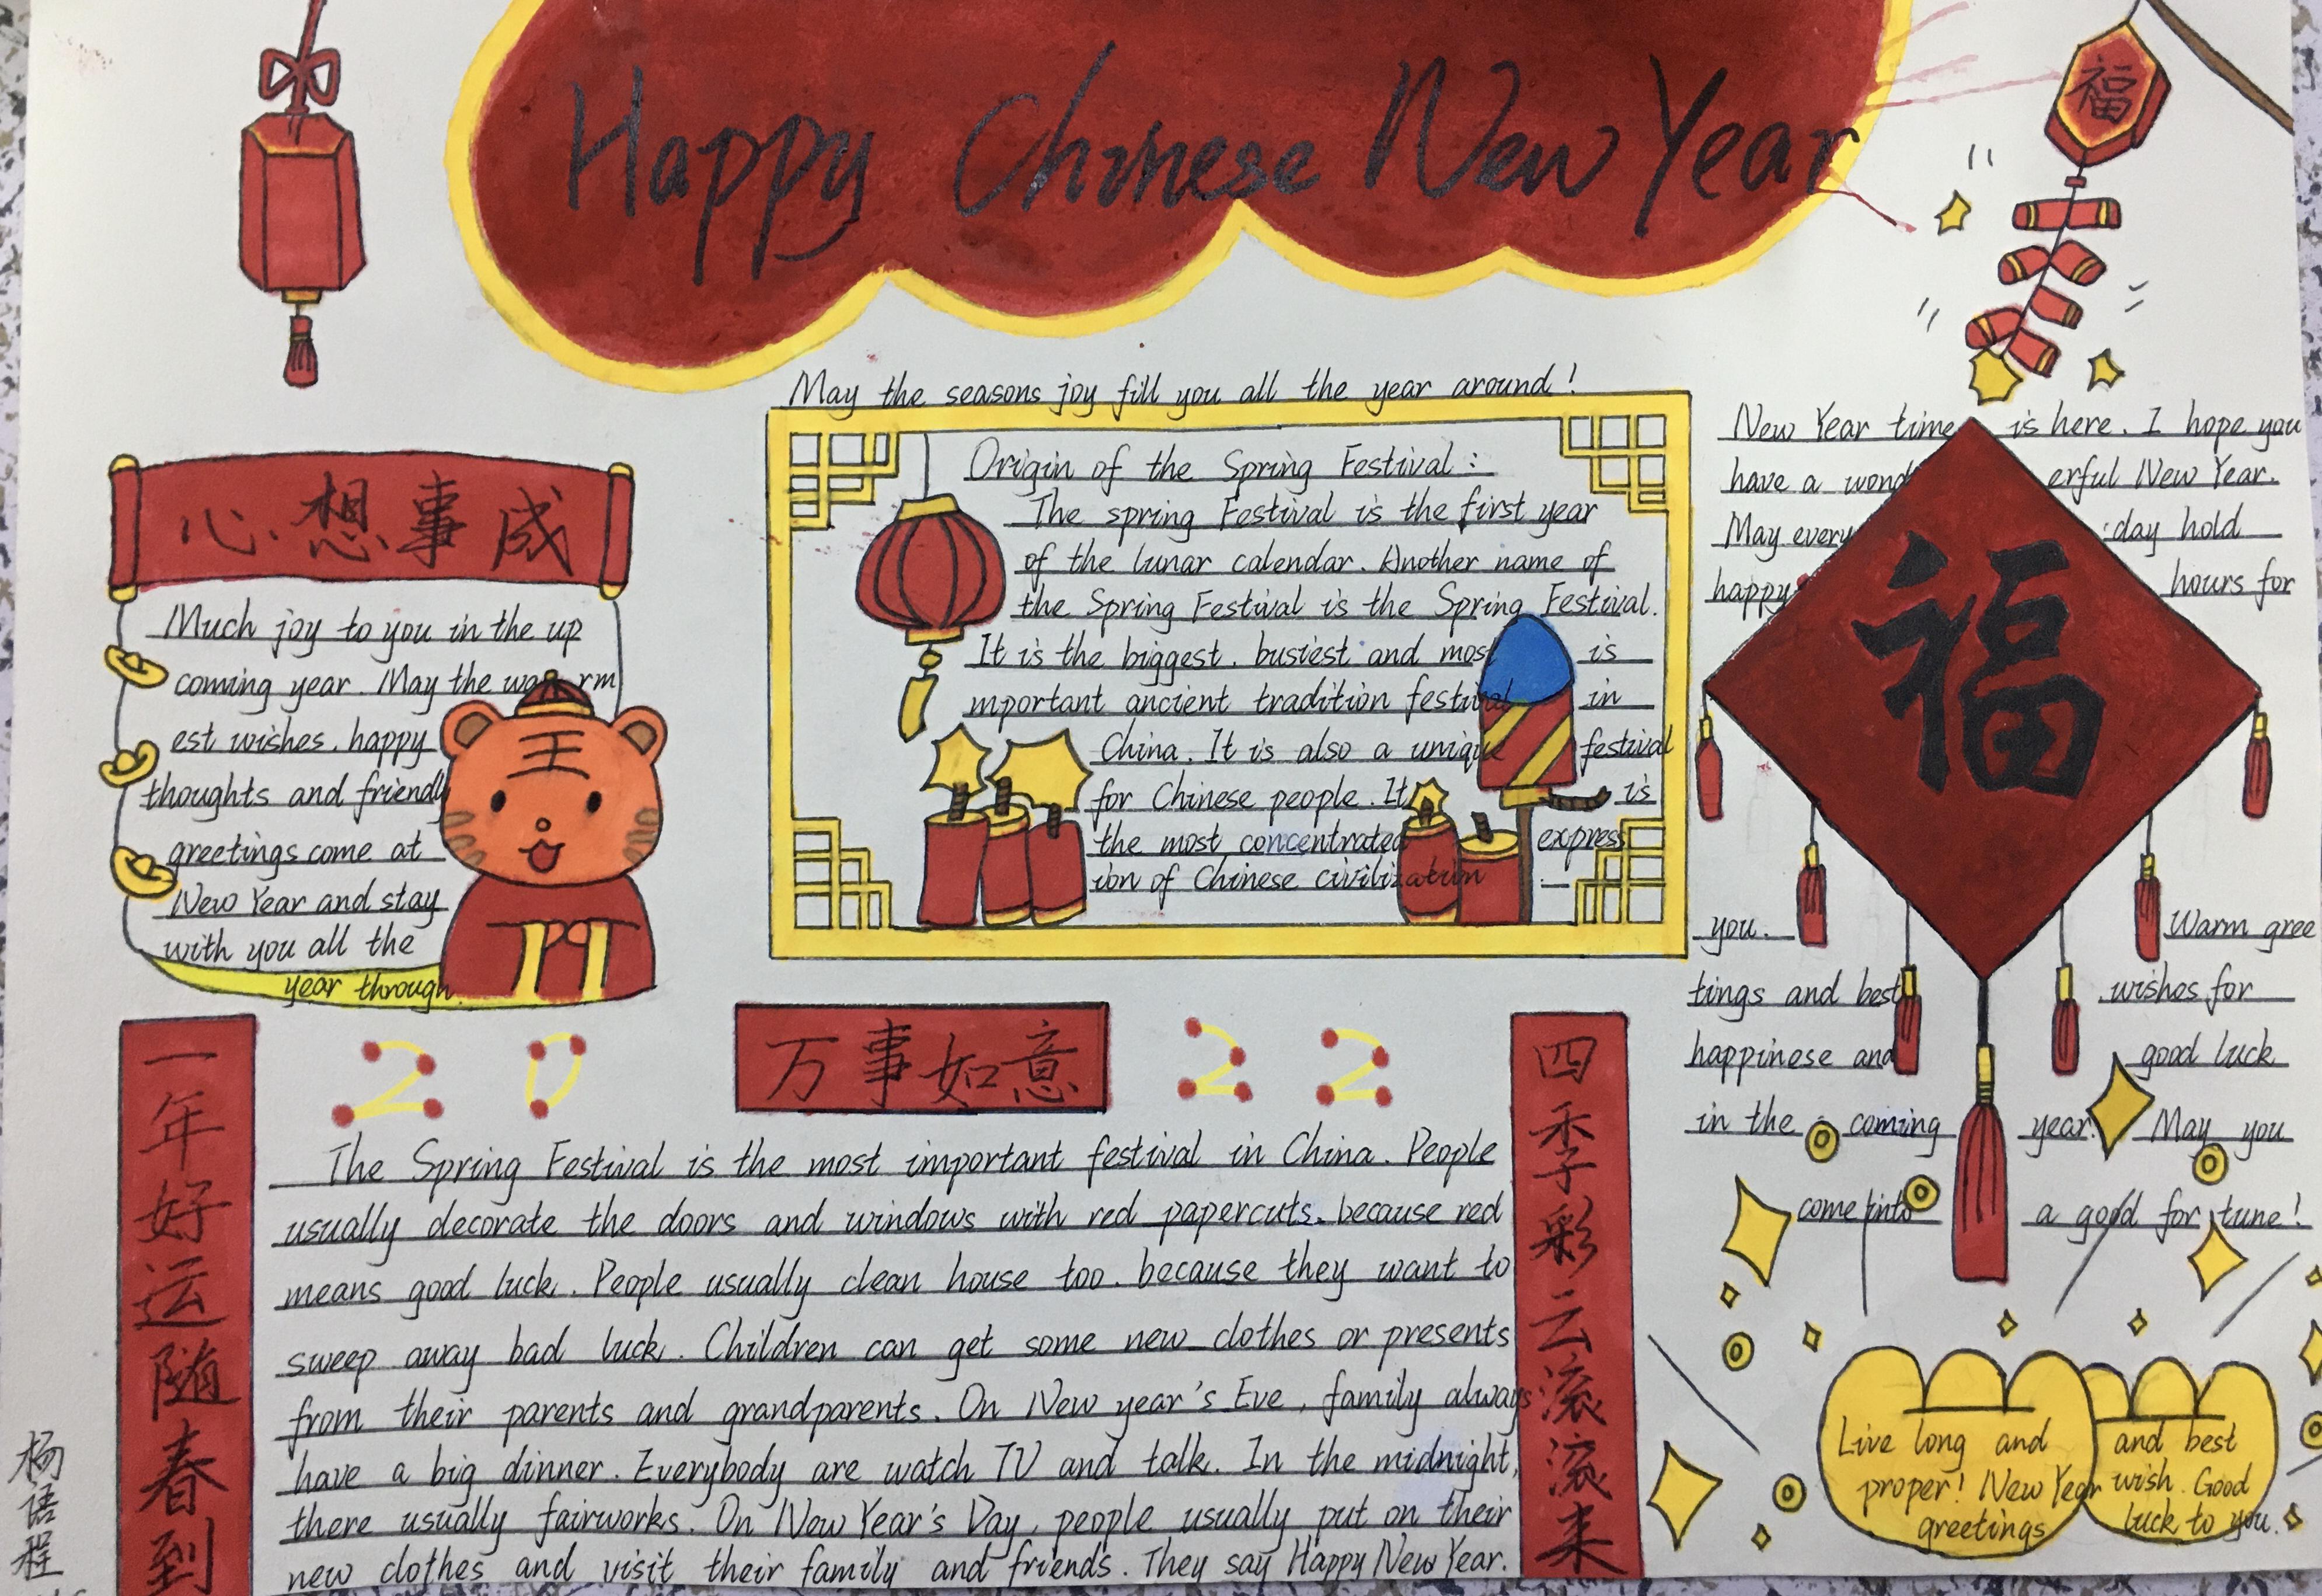 Happy Chinese New Year
福
May the seasons joy fill you all the year around!
心想事成
Much joy to you in the up
coming year. May the wa rm
est wishes, happy
thoughts and friendly
greetings come at
New Year and stay
with you all the
year through.
Origin of the Spring Festival:
The spring Festival is the first year
of the lunar calendar. Another name of
the Spring Festival is the Spring Festival.
It is the biggest, busiest and most is
mportant ancient tradition festival in
China. It is also a unique festival
for Chinese people. It is
the most concentrated express
ion of Chinese civilization
New Year time is here. I hope you
have a wond erful New Year.
May every day hold
happy hours for
福
you. Warm gree
tings and best wishes for
happinese and good luck
in the coming year. May you
come into a good for tune!
一年好运随春到
20
万事如意
22
四季彩云滚滚来
The Spring Festival is the most important festival in China. People
usually decorate the doors and windows with red papercuts. because red
means good luck. People usually clean house too. because they want to
sweep away bad luck. Children can get some new clothes or presents
from their parents and grandparents. On New year's Eve, family always
have a big dinner. Everybody are watch TV and talk. In the midnight,
there usually fairworks. On New Year's Day, people usually put on their
new clothes and visit their family and friends. They say Happy New Year.
Live long and
proper! New Year
greetings
and best
wish. Good
luck to you.
王
杨语程